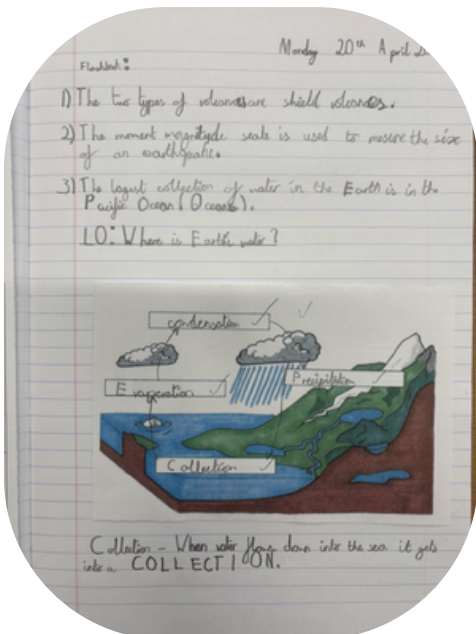 Monday 20th April
Flashback:
1) The two types of volcanoes are shield volcanoes.
2) The moment magnityde scale is used to mesure the size
of an earthquake.
3) The largest collection of water in the Earth is in the
Pacific Ocean (Oceans).
LO: Where is Earth's water?
condensation
Evaporation
Precipitation
Collection
Collection - When water flows down into the sea it gets
into a COLLECTION.